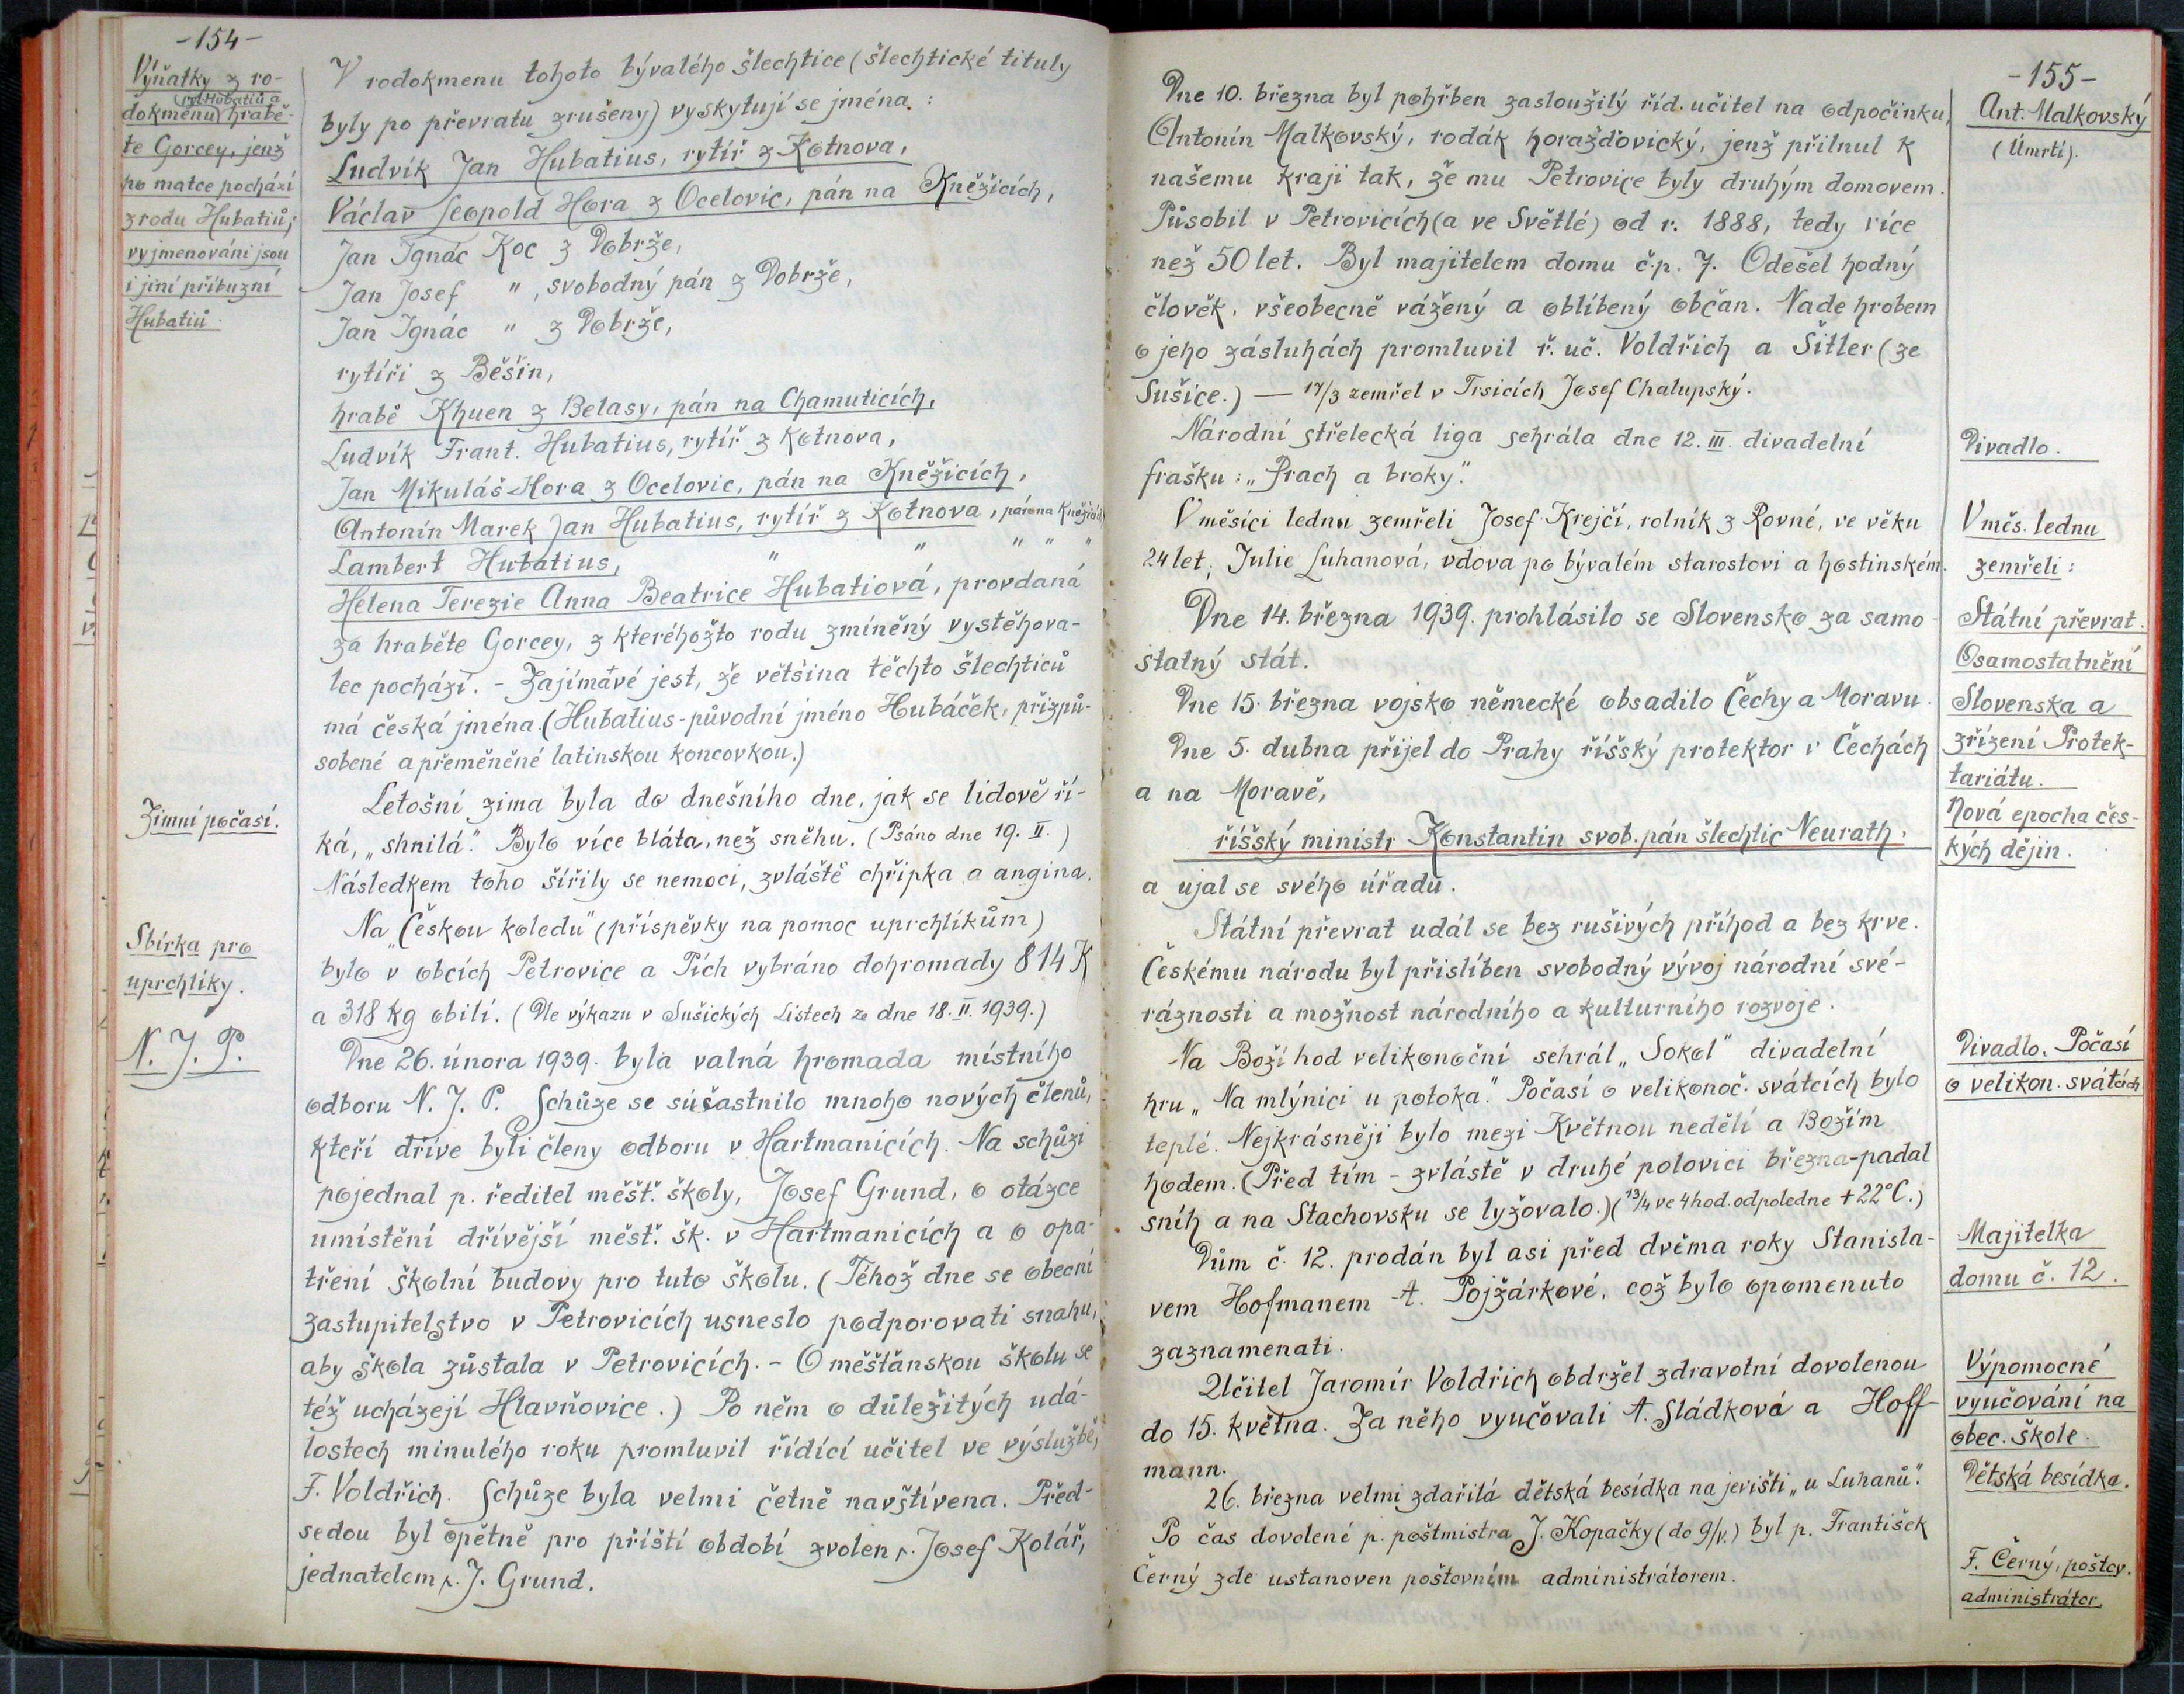 -154-
Výňatky z ro-
ryt. Hubatiů a
dokmenu hrabě-
te Gorcey, jenž
po matce pochází
z rodu Hubatiů;
vyjmenováni jsou
i jiní příbuzní
Hubatiů.
V rodokmenu tohoto bývalého šlechtice (šlechtické tituly
byly po převratu zrušeny) vyskytují se jména:
Ludvík Jan Hubatius, rytíř z Kotnova,
Václav Leopold Hora z Ocelovic, pán na Kněžicích,
Jan Ignác Koc z Dobrže,
Jan Josef " , svobodný pán z Dobrže,
Jan Ignác " z Dobrže,
rytíři z Běšin,
hrabě Khuen z Belasy, pán na Chamuticích,
Ludvík Frant. Hubatius, rytíř z Kotnova,
Jan Mikuláš Hora z Ocelovic, pán na Kněžicích,
Antonín Marek Jan Hubatius, rytíř z Kotnova, pán na Kněžicích
Lambert Hubatius, " " " " "
Helena Terezie Anna Beatrice Hubatiová, provdaná
za hraběte Gorcey, z kteréhožto rodu zmíněný vystěhova-
lec pochází. - Zajímavé jest, že většina těchto šlechticů
má česká jména. (Hubatius - původní jméno Hubáček, přizpů-
sobené a přeměněné latinskou koncovkou.)
Zimní počasí.
Letošní zima byla do dnešního dne, jak se lidově ří-
ká, „shnilá". Bylo více bláta, než sněhu. (Psáno dne 19. II.)
Následkem toho šířily se nemoci, zvláště chřipka a angina.
Sbírka pro
uprchlíky.
Na „Českou koledu" (příspěvky na pomoc uprchlíkům)
bylo v obcích Petrovice a Pích vybráno dohromady 814 K
a 318 kg obilí. (Dle výkazu v Sušických Listech ze dne 18. II. 1939.)
N. J. P.
Dne 26. února 1939. byla valná hromada místního
odboru N. J. P. Schůze se súčastnilo mnoho nových členů,
kteří dříve byli členy odboru v Hartmanicích. Na schůzi
pojednal p. ředitel měšť. školy, Josef Grund, o otázce
umístění dřívější měšť. šk. v Hartmanicích a o opa-
tření školní budovy pro tuto školu. (Téhož dne se obecní
zastupitelstvo v Petrovicích usneslo podporovati snahu,
aby škola zůstala v Petrovicích. - O měšťanskou školu se
též ucházejí Hlavňovice.) Po něm o důležitých udá-
lostech minulého roku promluvil řídící učitel ve výslužbě,
F. Voldřich. Schůze byla velmi četně navštívena. Před-
sedou byl opětně pro příští období zvolen p. Josef Kolář,
jednatelem p. J. Grund.
-155-
Ant. Malkovský
(Úmrtí).
Dne 10. března byl pohřben zasloužilý říd. učitel na odpočinku,
Antonín Malkovský, rodák horažďovický, jenž přilnul k
našemu kraji tak, že mu Petrovice byly druhým domovem.
Působil v Petrovicích (a ve Světlé) od r. 1888, tedy více
než 50 let. Byl majitelem domu č.p. 7. Odešel hodný
člověk, všeobecně vážený a oblíbený občan. Nade hrobem
o jeho zásluhách promluvil ř. uč. Voldřich a Šitler (ze
Sušice.) — 17/3 zemřel v Trsicích Josef Chalupský.
Divadlo.
Národní střelecká liga sehrála dne 12. III. divadelní
frašku: „Prach a broky".
V měs. lednu
zemřeli:
V měsíci lednu zemřeli Josef Krejčí, rolník z Rovné, ve věku
24 let, Julie Luhanová, vdova po bývalém starostovi a hostinském.
Státní převrat.
Osamostatnění
Slovenska a
zřízení Protek-
tariátu.
Nová epocha čes-
kých dějin.
Dne 14. března 1939. prohlásilo se Slovensko za samo-
statný stát.
Dne 15. března vojsko německé obsadilo Čechy a Moravu.
Dne 5. dubna přijel do Prahy říšský protektor v Čechách
a na Moravě,
říšský ministr Konstantin svob. pán šlechtic Neurath,
a ujal se svého úřadu.
Státní převrat udál se bez rušivých příhod a bez krve.
Českému národu byl přislíben svobodný vývoj národní své-
ráznosti a možnost národního a kulturního rozvoje.
Divadlo. Počasí
o velikon. svátcích
Na Boží hod velikonoční sehrál „Sokol" divadelní
hru „Na mlýnici u potoka". Počasí o velikonoč. svátcích bylo
teplé. Nejkrásněji bylo mezi Květnou nedělí a Božím
hodem. (Před tím - zvláště v druhé polovici března - padal
sníh a na Stachovsku se lyžovalo.) (13/4 ve 4 hod. odpoledne +22°C.)
Majitelka
domu č. 12.
Dům č. 12. prodán byl asi před dvěma roky Stanisla-
vem Hofmanem A. Pojžárkové, což bylo opomenuto
zaznamenati.
Výpomocné
vyučování na
obec. škole.
Učitel Jaromír Voldřich obdržel zdravotní dovolenou
do 15. května. Za něho vyučovali A. Sládková a Hoff-
mann.
Dětská besídka.
26. března velmi zdařilá dětská besídka na jevišti „u Luhanů".
F. Černý, poštov.
administrátor.
Po čas dovolené p. poštmistra J. Kopačky (do 9/V.) byl p. František
Černý zde ustanoven poštovním administrátorem.